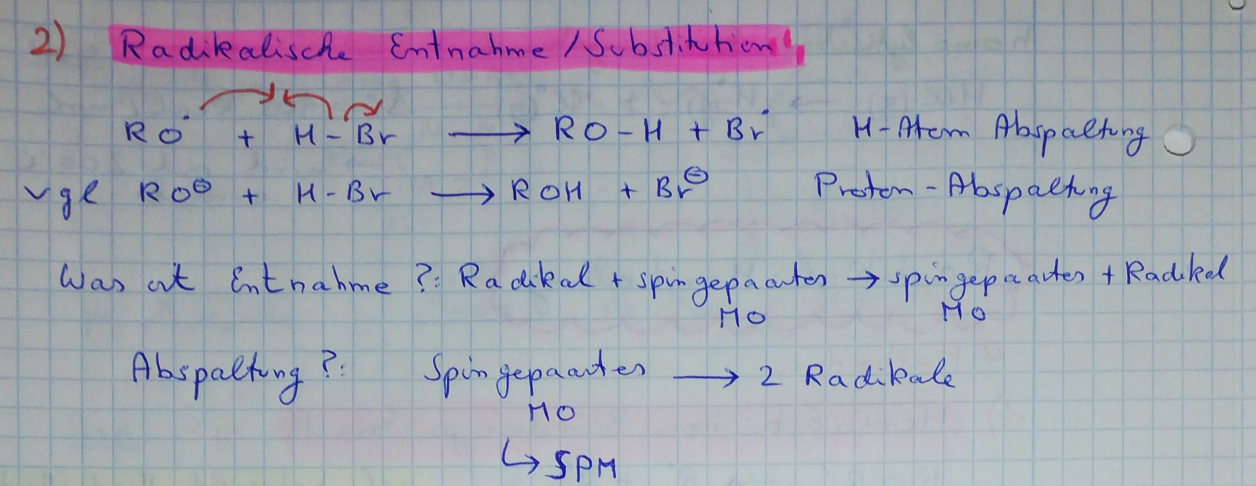 2) Radikalische Entnahme/Substitution!
RO˙ + H-Br ⟶ RO-H + Br˙ H-Atom Abspaltung
vgl RO⊖ + H-Br ⟶ ROH + Br⊖ Proton-Abspaltung
Was ist Entnahme?: Radikal + spingepaartes → spingepaartes + Radikal
MO MO
Abspaltung?: Spingepaartes ⟶ 2 Radikale
MO
↳ SPM